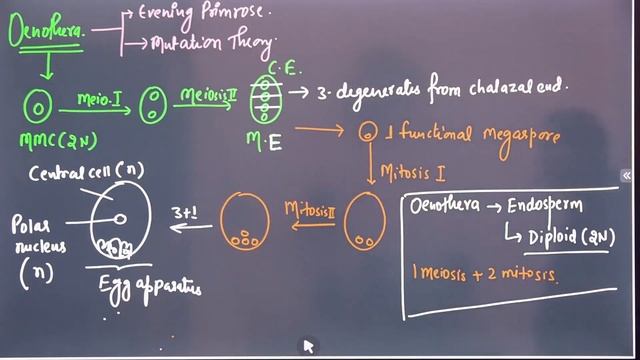 Oenothera. → Evening Primrose.
→ Mutation Theory.
C.E.
Meio.I
Meiosis II
→ 3-degenerates from chalazal end.
MMC(2N)
M.E
1 functional megaspore
Mitosis I
Central cell (n)
Polar nucleus (n)
3+1
Mitosis II
Egg apparatus
Oenothera → Endosperm
Diploid (2N)
1 meiosis + 2 mitosis.